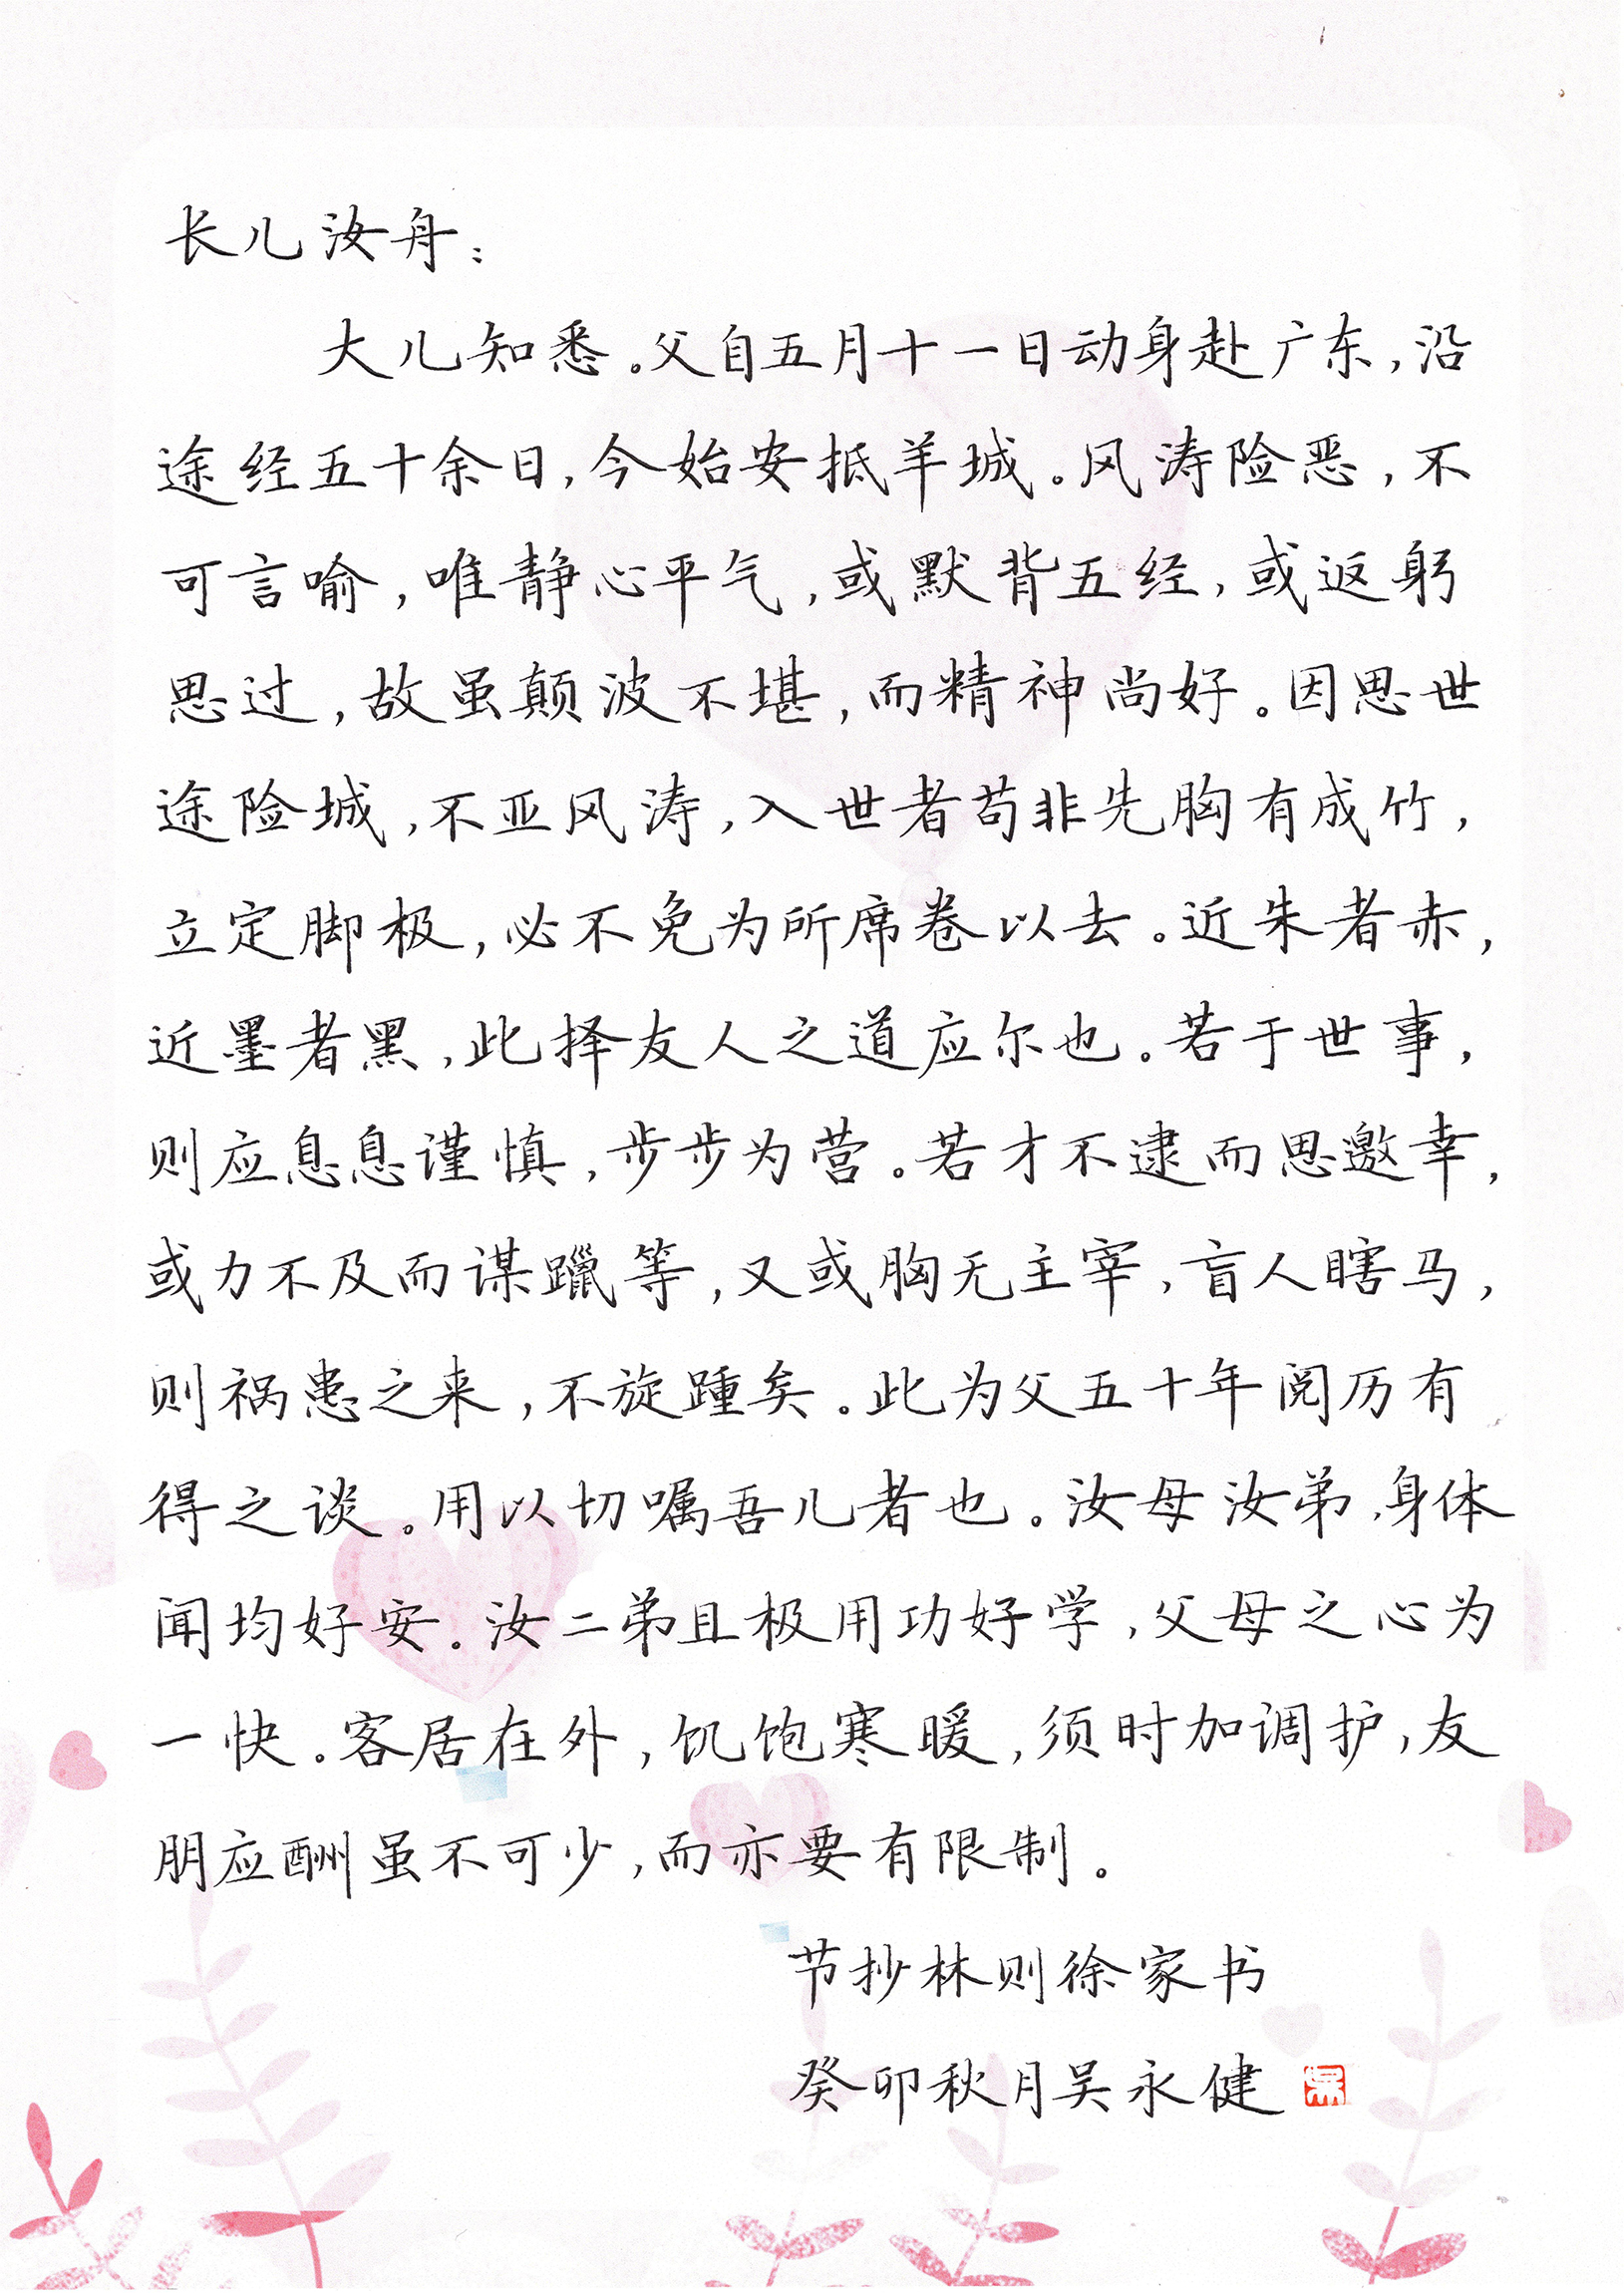 长儿汝舟：
大儿知悉。父自五月十一日动身赴广东，沿
途经五十余日，今始安抵羊城。风涛险恶，不
可言喻，唯静心平气，或默背五经，或返躬
思过，故虽颠波不堪，而精神尚好。因思世
途险城，不亚风涛，入世者苟非先胸有成竹，
立定脚极，必不免为所席卷以去。近朱者赤，
近墨者黑，此择友人之道应尔也。若于世事，
则应息息谨慎，步步为营。若才不逮而思邀幸，
或力不及而谋躐等，又或胸无主宰，盲人瞎马，
则祸患之来，不旋踵矣。此为父五十年阅历有
得之谈。用以切嘱吾儿者也。汝母汝弟，身体
闻均好安。汝二弟且极用功好学，父母之心为
一快。客居在外，饥饱寒暖，须时加调护，友
朋应酬虽不可少，而亦要有限制。
节抄林则徐家书
癸卯秋月吴永健